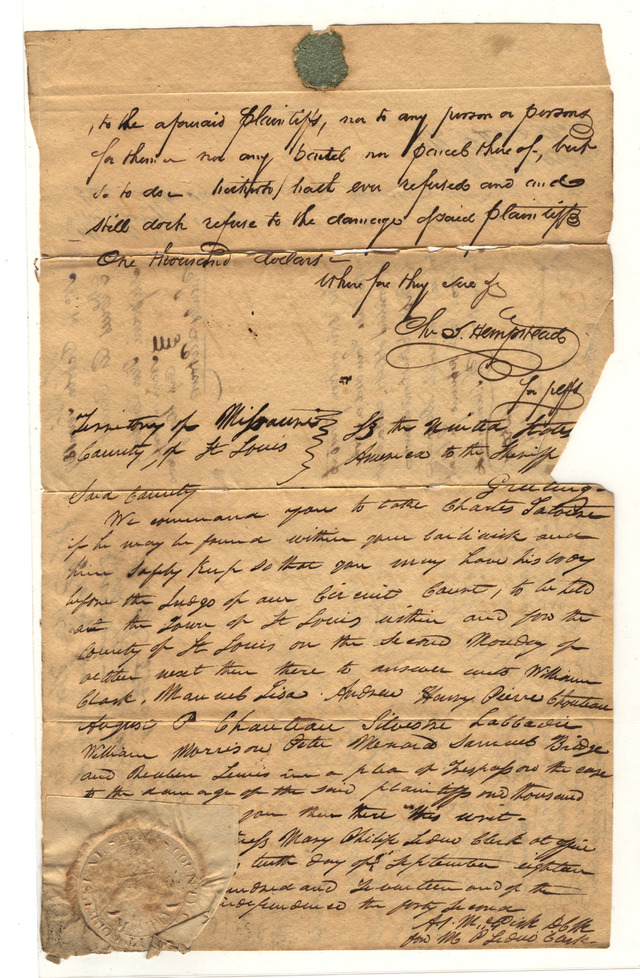 , to the aforesaid plaintiffs, nor to any person or persons
for them or nor any part nor parcel thereof, but
so to do (hitherto) hath ever refused and and
still doth refuse to the damage of said plaintiffs
One thousand dollars
Wherefore they sue &
Ch. S. Hempstead
for plffs
Territory of Missouri
County of St Louis
SS the United States
America to the Sheriff
Said County Greeting
We command you to take Charles
if he may be found within your bailiwick and
him safely keep so that you may have his body
before the Judge of our Circuit Court, to be held
at the Town of St Louis within and for the
County of St Louis on the second Monday of
october next then there to answer unto William
Clark, Manuel Lisa. Andrew Henry Pierre Chouteau
August P Chouteau Silvestre Labbadie
William Morrison Peter Menard Samuel Bridge
and Reuben Lewis in a plea of Trespass on the case
to the damage of the said plaintiffs one thousand
you then there this writ-
tress Mary Philip Leduc Clerk at office
tenth day of September eighteen
undred and Seventeen and of the
independence the forty second
D Clk
for M P Leduc Clerk-